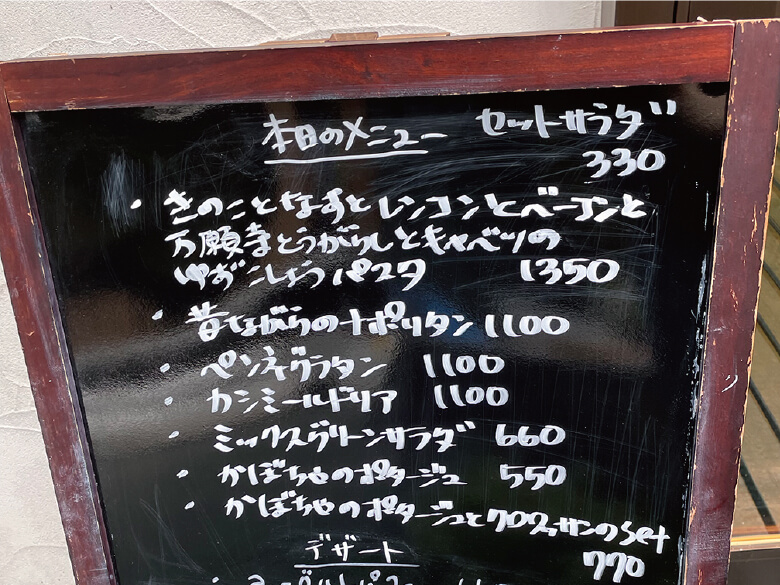 本日のメニュー セットサラダ
330
・きのことなすとレンコンとベーコンと
万願寺とうがらしとキャベツの
ゆずこしょうパスタ 1350
・昔ながらのナポリタン 1100
・ペンネグラタン 1100
・カシミールドリア 1100
・ミックスグリーンサラダ 660
・かぼちゃのポタージュ 550
・かぼちゃのポタージュとクロワッサンのset
770
デザート